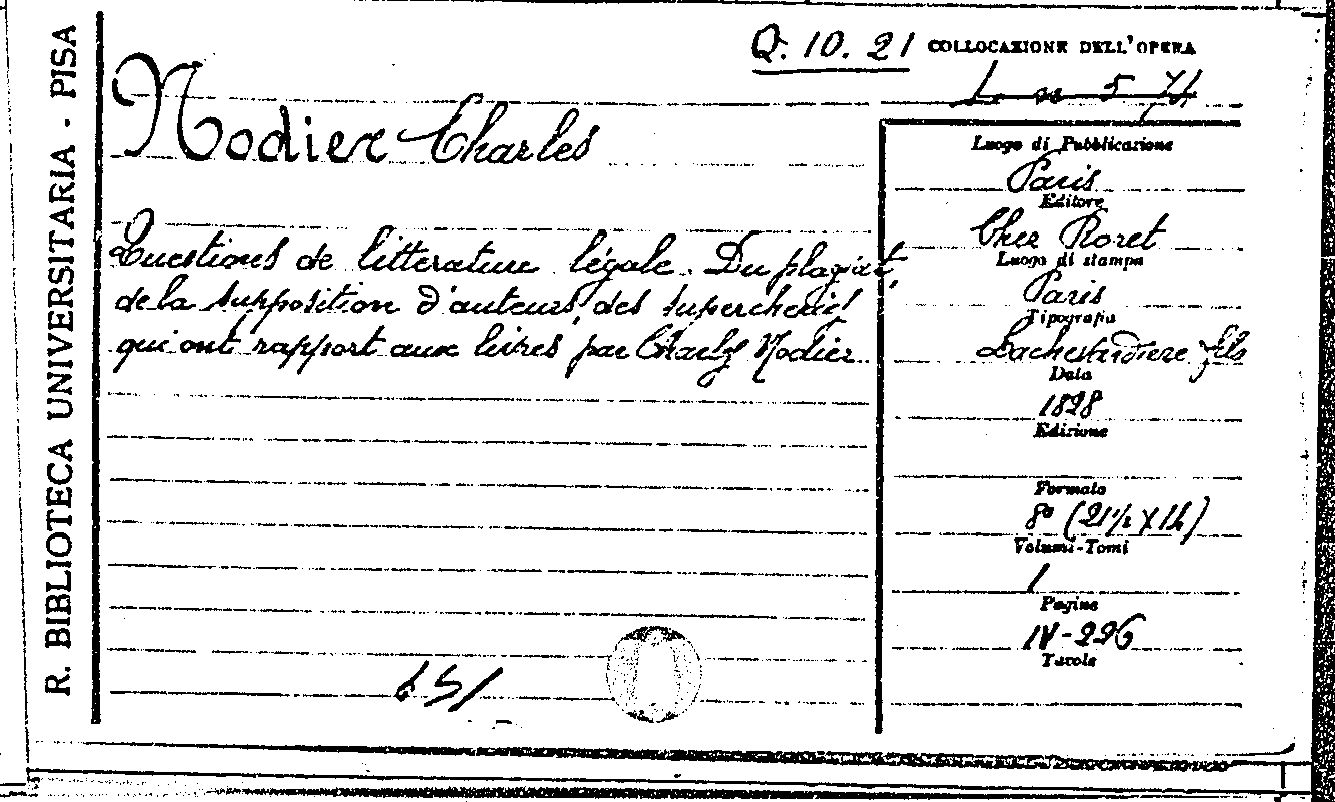 R. BIBLIOTECA UNIVERSITARIA - PISA
Q. 10. 21 COLLOCAZIONE DELL'OPERA
L. n 5 74
Nodier Charles
Questions de litterature légale. Du plagiat,
de la supposition d'auteurs, des supercheries
qui ont rapport aux livres, par Charles Nodier.
Luogo di Pubblicazione
Paris
Editore
Chez Roret
Luogo di stampa
Paris
Tipografia
Lachevardiere fils
Data
1828
Edizione
Formato
8º (21½ X 14)
Volumi-Tomi
1
Pagine
IV-226
Tavole
651